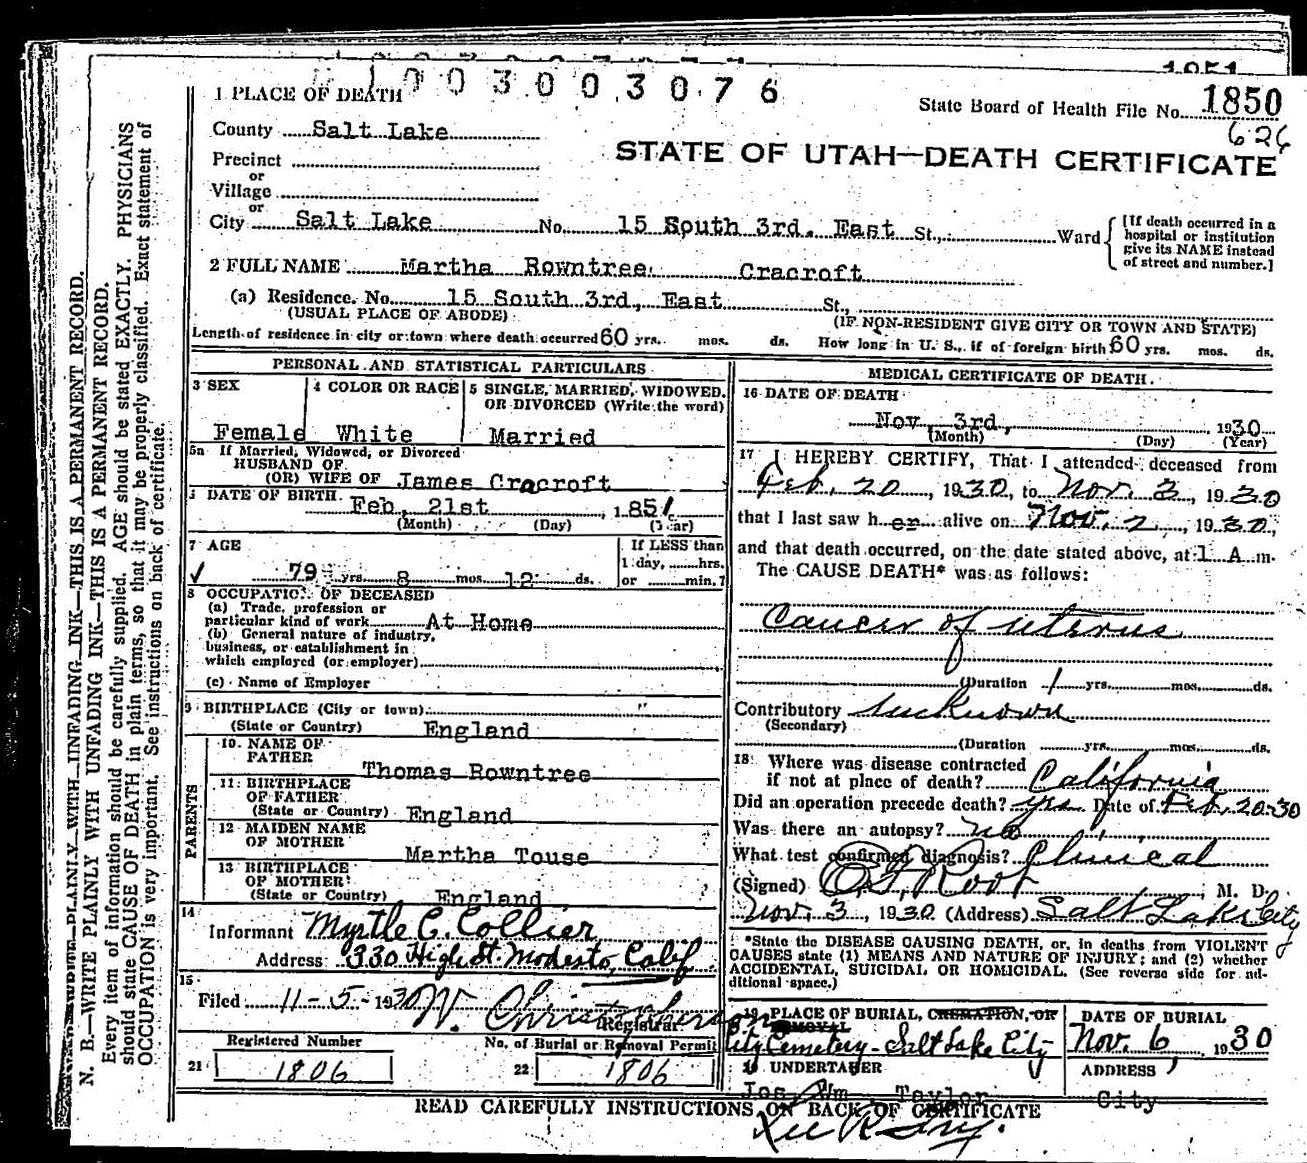 1003003076
1 PLACE OF DEATH
State Board of Health File No. 1850
626
County Salt Lake
STATE OF UTAH—DEATH CERTIFICATE
Precinct
or
Village
or
City Salt Lake No. 15 South 3rd. East St., Ward
[If death occurred in a
hospital or institution
give its NAME instead
of street and number.]
2 FULL NAME Martha Rowntree Cracroft
(a) Residence. No. 15 South 3rd, East St.,
(USUAL PLACE OF ABODE) (IF NON-RESIDENT GIVE CITY OR TOWN AND STATE)
Length of residence in city or town where death occurred 60 yrs. mos. ds. How long in U. S., if of foreign birth 60 yrs. mos. ds.
PERSONAL AND STATISTICAL PARTICULARS
3 SEX 4 COLOR OR RACE 5 SINGLE, MARRIED, WIDOWED,
OR DIVORCED (Write the word)
Female White Married
5a If Married, Widowed, or Divorced
HUSBAND OF
(OR) WIFE OF James Cracroft
DATE OF BIRTH
Feb, 21st , 1851
(Month) (Day) (Year)
7 AGE If LESS than
1 day, hrs.
79 yrs. 8 mos. 12 ds. or min.?
8 OCCUPATION OF DECEASED
(a) Trade, profession or
particular kind of work At Home
(b) General nature of industry,
business, or establishment in
which employed (or employer)
(c) Name of Employer
9 BIRTHPLACE (City or town) "
(State or Country) England
PARENTS
10. NAME OF
FATHER
Thomas Rowntree
11 BIRTHPLACE
OF FATHER
(State or Country) England
12 MAIDEN NAME
OF MOTHER Martha Touse
13 BIRTHPLACE
OF MOTHER
(State or Country) England
14
Informant Myrtle C. Collier
Address: 330 High St. Modesto, Calif
15
Filed 11-5-1930 W. Christopherson
Registrar
Registered Number No. of Burial or Removal Permit
21 1806 22 1806
MEDICAL CERTIFICATE OF DEATH.
16 DATE OF DEATH
Nov, 3rd, , 1930
(Month) (Day) (Year)
17 I HEREBY CERTIFY, That I attended deceased from
Feb. 20 , 1930, to Nov. 3 , 1930
that I last saw her alive on Nov. 2 , 1930,
and that death occurred, on the date stated above, at 1 A m.
The CAUSE DEATH* was as follows:
Cancer of uterus
(Duration 1 yrs. mos. ds.
Contributory unknown
(Secondary)
(Duration yrs. mos. ds.
18 Where was disease contracted
if not at place of death? California
Did an operation precede death? yes Date of Feb. 20-30
Was there an autopsy? no
What test confirmed diagnosis? Clinical
(Signed) E. F. Root M. D.
Nov. 3, 1930 (Address) Salt Lake City
*State the DISEASE CAUSING DEATH, or, in deaths from VIOLENT
CAUSES state (1) MEANS AND NATURE OF INJURY; and (2) whether
ACCIDENTAL, SUICIDAL OR HOMICIDAL. (See reverse side for ad-
ditional space.)
19 PLACE OF BURIAL, CREMATION, OR
REMOVAL
City Cemetery - Salt Lake City
DATE OF BURIAL
Nov. 6, 1930
UNDERTAKER ADDRESS
Jos. Wm Taylor City
READ CAREFULLY INSTRUCTIONS ON BACK OF CERTIFICATE
N. B.—WRITE PLAINLY WITH UNFADING INK—THIS IS A PERMANENT RECORD.
Every item of information should be carefully supplied. AGE should be stated EXACTLY. PHYSICIANS
should state CAUSE OF DEATH in plain terms, so that it may be properly classified. Exact statement of
OCCUPATION is very important. See instructions on back of certificate.